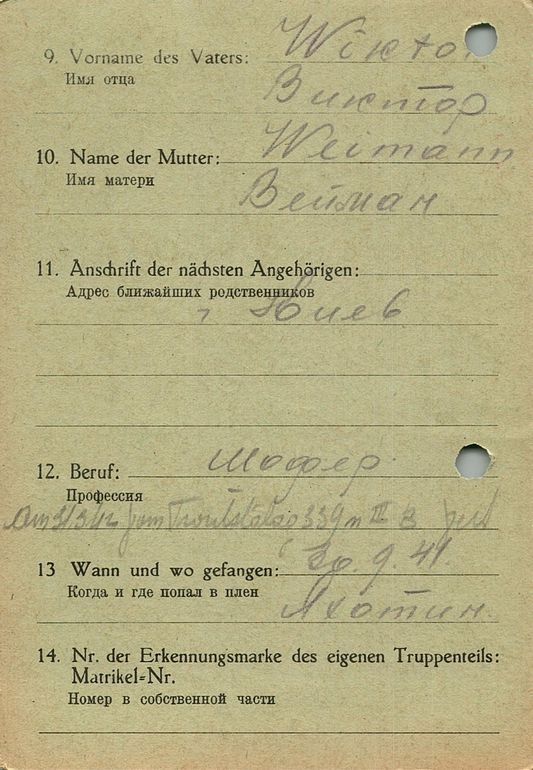 9. Vorname des Vaters: Wiktor
Имя отца
Виктор
10. Name der Mutter: Weimann
Имя матери
Вейман
11. Anschrift der nächsten Angehörigen:
Адрес ближайших родственников
г. Киев
12. Beruf: Шофер
Профессия
339 III B
13 Wann und wo gefangen: 20.9.41.
Когда и где попал в плен
Яготин.
14. Nr. der Erkennungsmarke des eigenen Truppenteils:
Matrikel=Nr.
Номер в собственной части